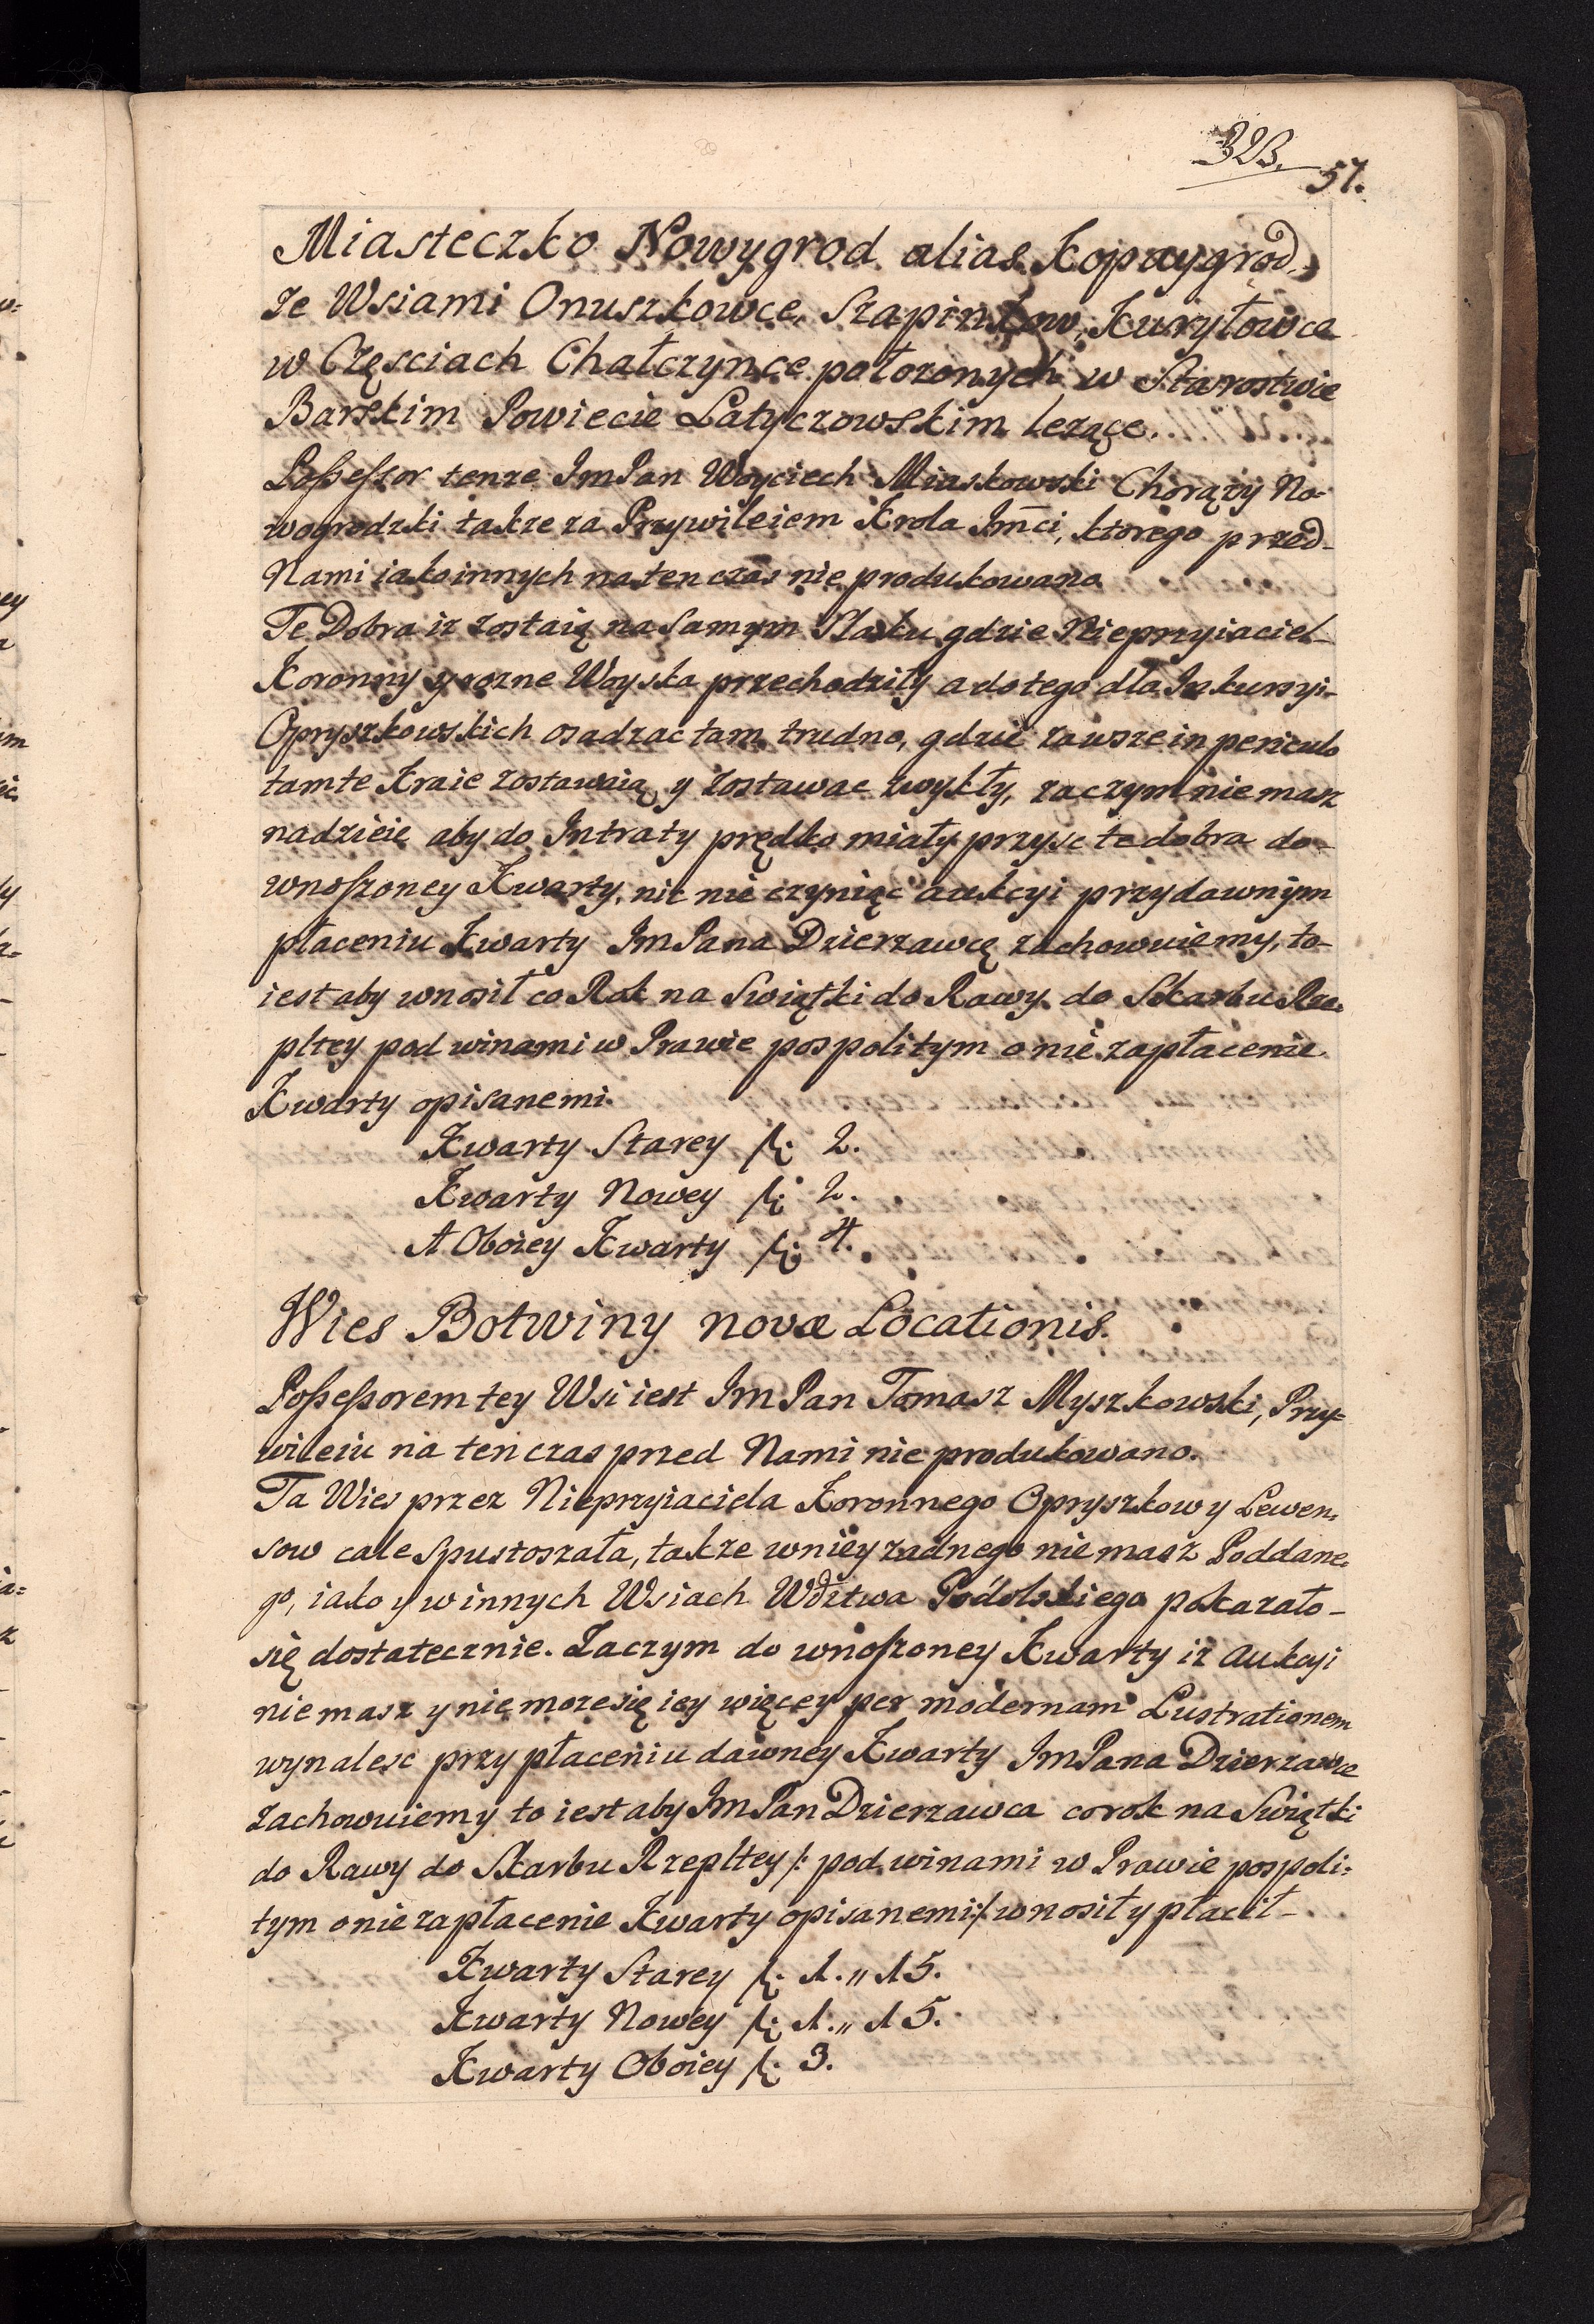 323.
57.
Miasteczko Nowygrod alias Kopaygrod,
ze Wsiami Onuszkowce, Szapinkow, Kuryłowce
w Częsciach Chałczynce połozonych w Starostwie
Barskim Powiecie Latyczowskim lezące.
Possessor tenze ImPan Woyciech Miaskowski Chorązy No-
wogrodzki takze za Przywileiem Krola Jm̄ci, ktorego przed-
Nami iako innych na ten czas nie produkowano
Te Dobra iz zostaią na samym Szlaku gdzie Nieprzyiaciel
Koronny y rozne Woyska przechodziły a do tego dla Inkursyi-
Opryszkowskich osadzac tam trudno, gdzie zawsze in periculo
tamte Kraie zostawaią y zostawac zwykły, zaczym nie masz
nadzieie aby do Intraty prędko miały przysc te dobra do-
wnoszoney Kwarty, nic nie czyniąc aukcyi przy dawnym
płaceniu Kwarty ImPana Dzierzawcę zachowuiemy, to-
iest aby wnosił co Rok na Swiątki do Rawy do Skarbu Rze-
pltey pod winami w Prawie pospolitym o nie zapłacenie
Kwarty opisanemi.
Kwarty Starey fl: 2.
Kwarty Nowey fl: 2.
A Oboiey Kwarty fl: 4.
Wies Botwiny novæ Locationis.
Possessorem tey Wsi iest ImPan Tomasz Myszkowski, Przy-
wileiu na ten czas przed Nami nie produkowano.
Ta Wies przez Nieprzyiaciela Koronnego Opryszkow y Lewen-
sow cale spustoszała, takze w niey zadnego nie masz Poddane-
go, iako y w innych Wsiach Wdztwa Podolskiego pokazało-
się dostatecznie. Zaczym do wnoszoney Kwarty iz aukcyi
nie masz y nie moze się iey więcey per modernam Lustrationem
wynalesc przy płaceniu dawney Kwarty ImPana Dzierzawce
zachowuiemy to iest aby ImPan Dzierzawca corok na Swiątki
do Rawy do Skarbu Rzepltey /: pod winami w Prawie pospoli-
tym o nie zapłacenie Kwarty opisanemi :/ wnosił y płacił-
Kwarty Starey fl: 1.,, 15.
Kwarty Nowey fl: 1.,, 15.
Kwarty Oboiey fl: 3.